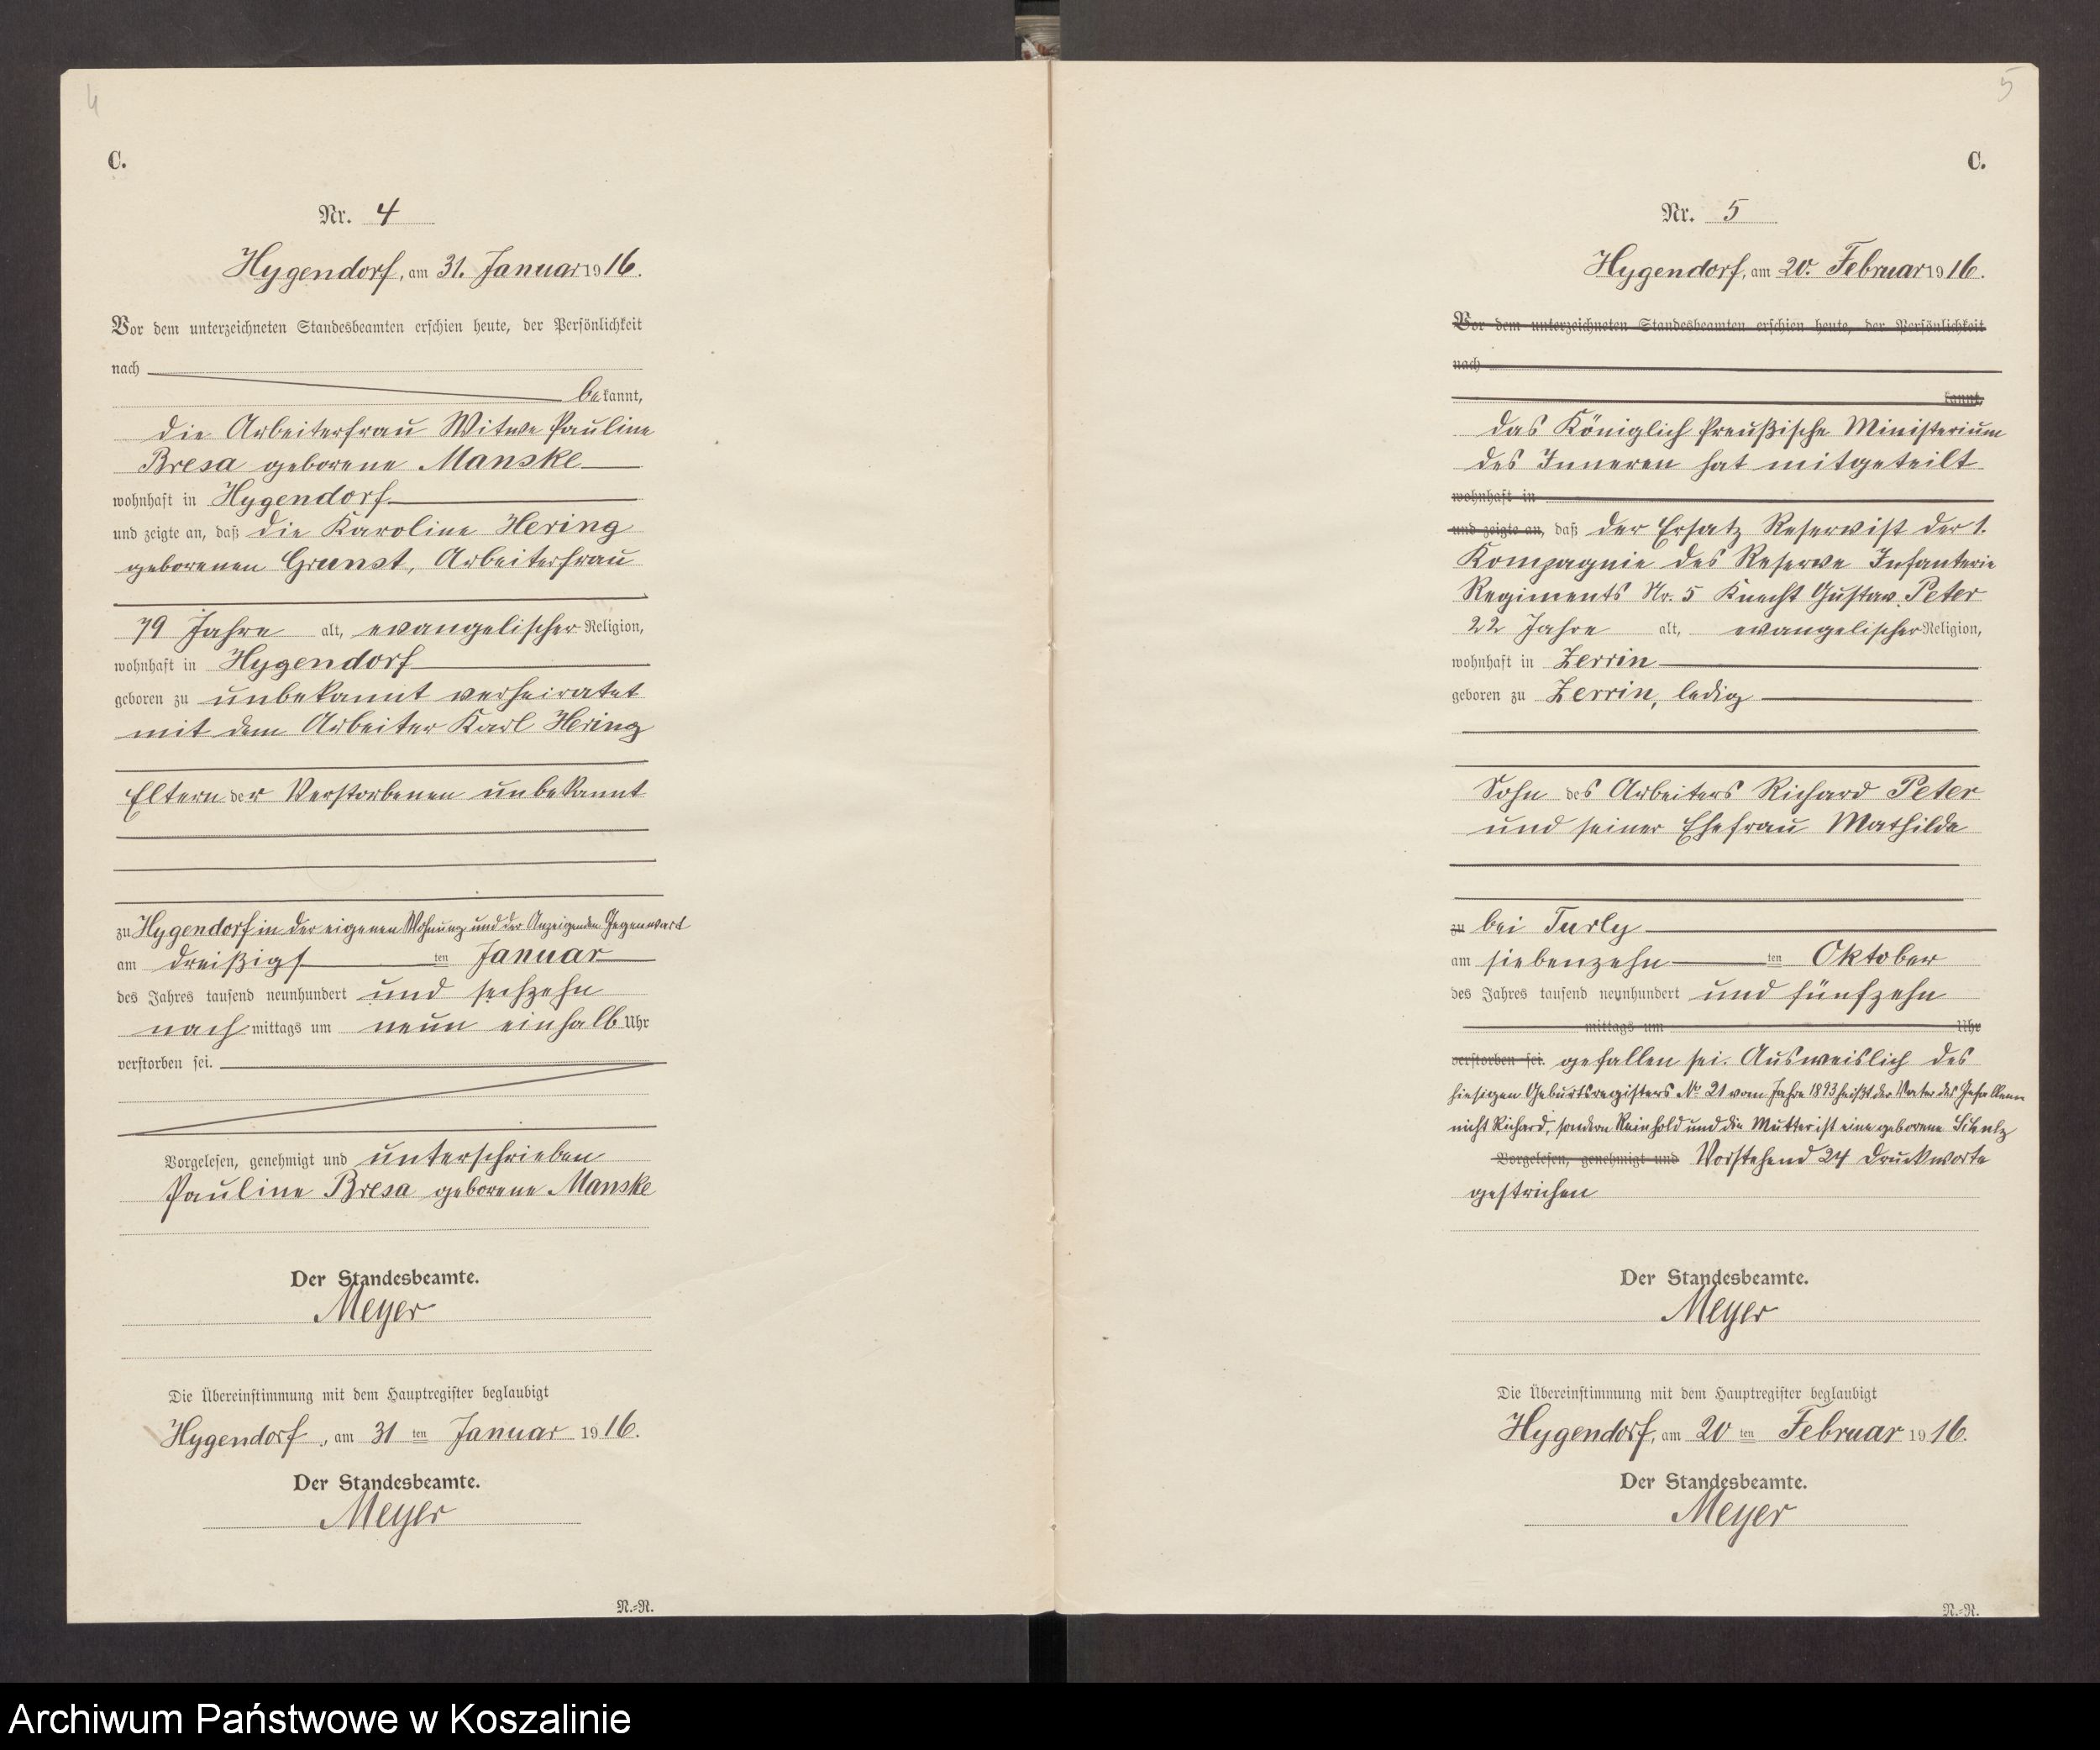 4
C.
Nr. 4
Hygendorf, am 31. Januar 1916.
Vor dem unterzeichneten Standesbeamten erschien heute, der Persönlichkeit
nach
bekannt,
die Arbeiterfrau Witwe Pauline
Bresa geborene Manske
wohnhaft in Hygendorf
und zeigte an, daß die Karoline Hering
geborenen Grunst, Arbeiterfrau
79 Jahre alt, evangelischer Religion,
wohnhaft in Hygendorf
geboren zu unbekannt verheiratet
mit dem Arbeiter Karl Hering
Eltern der Verstorbenen unbekannt
zu Hygendorf in der eigenen Wohnung und der Anzeigenden Gegenwart
am dreißigs ten Januar
des Jahres tausend neunhundert und sechzehn
nach mittags um neun einhalb Uhr
verstorben sei.
Vorgelesen, genehmigt und unterschrieben
Pauline Bresa geborene Manske
Der Standesbeamte.
Meyer
Die Übereinstimmung mit dem Hauptregister beglaubigt
Hygendorf, am 31 ten Januar 1916.
Der Standesbeamte.
Meyer
N.=N.
5
C.
Nr. 5
Hygendorf, am 20. Februar 1916.
Vor dem unterzeichneten Standesbeamten erschien heute, der Persönlichkeit
nach
kannt,
das Königlich Preußische Ministerium
des Inneren hat mitgeteilt
wohnhaft in
und zeigte an, daß der Ersatz Reservist der 1.
Kompagnie des Reserve Infanterie
Regiments Nr. 5 Knecht Gustav Peter
22 Jahre alt, evangelischer Religion,
wohnhaft in Zerrin
geboren zu Zerrin, ledig
Sohn des Arbeiters Richard Peter
und seiner Ehefrau Mathilde
zu bei Turly
am siebenzehn ten Oktober
des Jahres tausend neunhundert und fünfzehn
mittags um Uhr
verstorben sei. gefallen sei. Ausweislich des
hiesigen Geburtsregisters No 21 vom Jahre 1893 heißt der Vater des Gefallenen
nicht Richard, sondern Reinhold und die Mutter ist eine geborene Schulz
Vorgelesen, genehmigt und Vorstehend 24 Druckworte
gestrichen
Der Standesbeamte.
Meyer
Die Übereinstimmung mit dem Hauptregister beglaubigt
Hygendorf, am 20 ten Februar 1916.
Der Standesbeamte.
Meyer
N.=N.
Archiwum Państwowe w Koszalinie